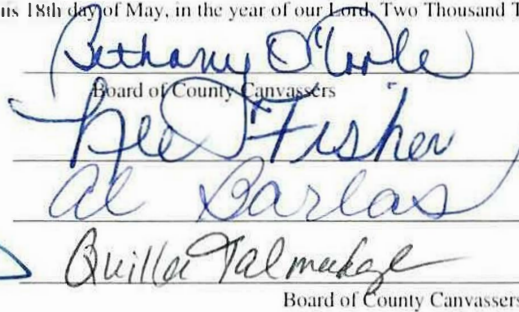 is 18th day of May, in the year of our Lord, Two Thousand T
Bethany O'Toole
Board of County Canvassers
Fisher
Al Barlas
Quilla Talmadge
Board of County Canvassers